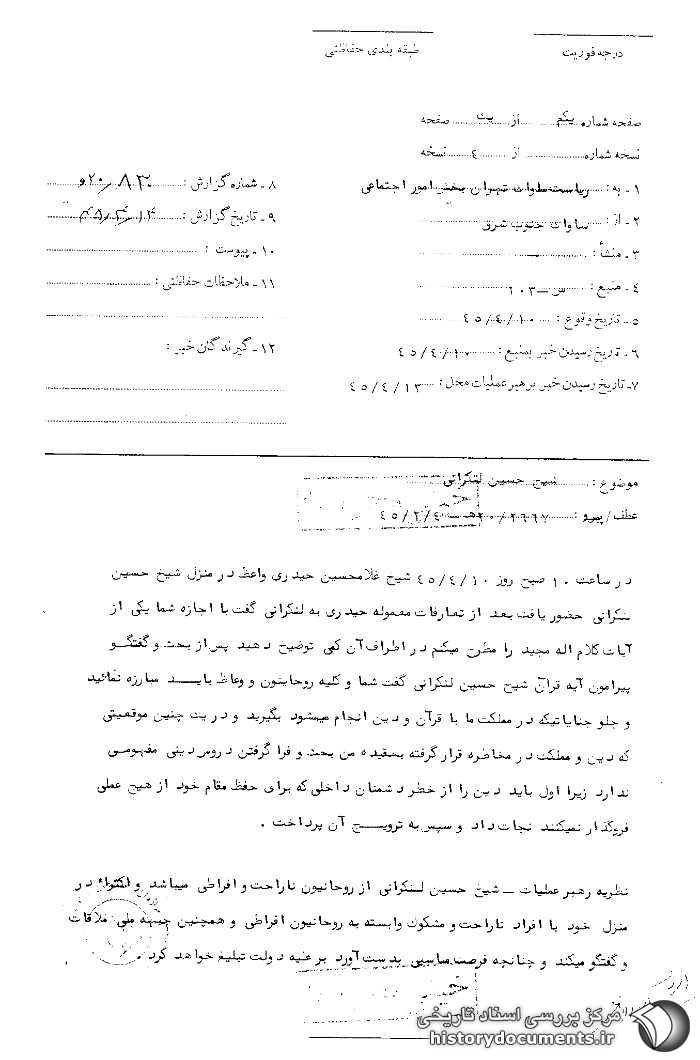 درجه فوریت
طبقه بندی حفاظتی
صفحه شماره یکم از یک صفحه
نسخه شماره از ٤ نسخه
۱ ـ به : ریاست ساواک تهران بخش امور اجتماعی
۲ ـ از : ساواک جنوب شرق
۳ ـ منشأ :
٤ ـ منبع : س ـ ۱۰۳
٥ ـ تاریخ وقوع : ٤٥/٤/۱۰
٦ ـ تاریخ رسیدن خبر بمنبع : ٤٥/٤/۱۰
۷ـ تاریخ رسیدن خبر برهبر عملیات محل : ٤٥/٤/۱۳
۸ ـ شماره گزارش :
۹ ـ تاریخ گزارش :
۱۰ ـ پیوست :
۱۱ ـ ملاحظات حفاظتی :
۱۲ ـ گیرندگان خبر :
موضوع : شیخ حسین لنکرانی
عطف / پیرو : ٤٥/۲/٤
در ساعت ۱۰ صبح روز ٤٥/٤/۱۰ شیخ غلامحسین حیدری واعظ در منزل شیخ حسین
لنکرانی حضور یافت بعد از تعارفات معموله حیدری به لنکرانی گفت با اجازه شما یکی از
آیات کلام اله مجید را مطرح میکنم در اطراف آن کمی توضیح دهید پس از بحث و گفتگو
پیرامون آیه قرآن شیخ حسین لنکرانی گفت شما و کلیه روحانیون و وعاظ باید مبارزه نمائید
و جلو جنایاتیکه در مملکت ما با قرآن و دین انجام میشود بگیرید و در یک چنین موقعیتی
که دین و مملکت در مخاطره قرار گرفته بعقیده من بحث و فرا گرفتن دروس دینی مفهومی
ندارد زیرا اول باید دین را از خطر دشمنان داخلی که برای حفظ مقام خود از هیچ عملی
فروگذار نمیکنند نجات داد و سپس به ترویج آن پرداخت .
نظریه رهبر عملیات ـ شیخ حسین لنکرانی از روحانیون ناراحت و افراطی میباشد و اکثرا در
منزل خود با افراد ناراحت و مشکوک وابسته به روحانیون افراطی و همچنین جبهه ملی ملاقات
و گفتگو میکند و چنانچه فرصت مناسبی بدست آورد بر علیه دولت تبلیغ خواهد کرد .
مرکز بررسی اسناد تاریخی
historydocuments.ir